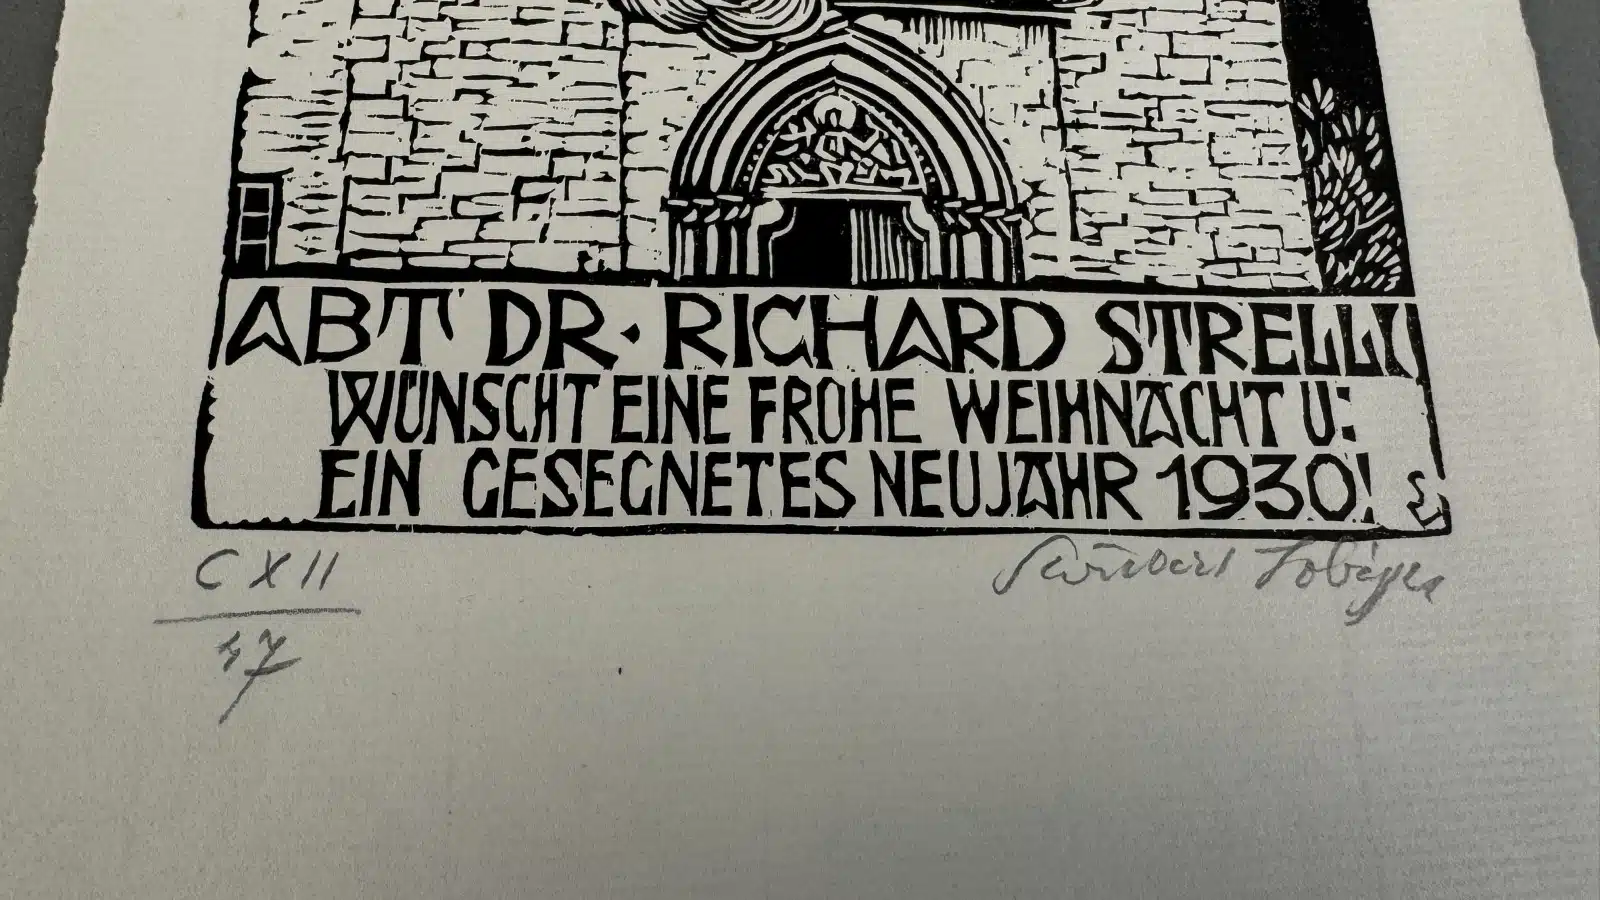 ABT DR· RICHARD STRELLI
WÜNSCHT EINE FROHE WEIHNACHT U:
EIN GESEGNETES NEUJAHR 1930!
CXII
47